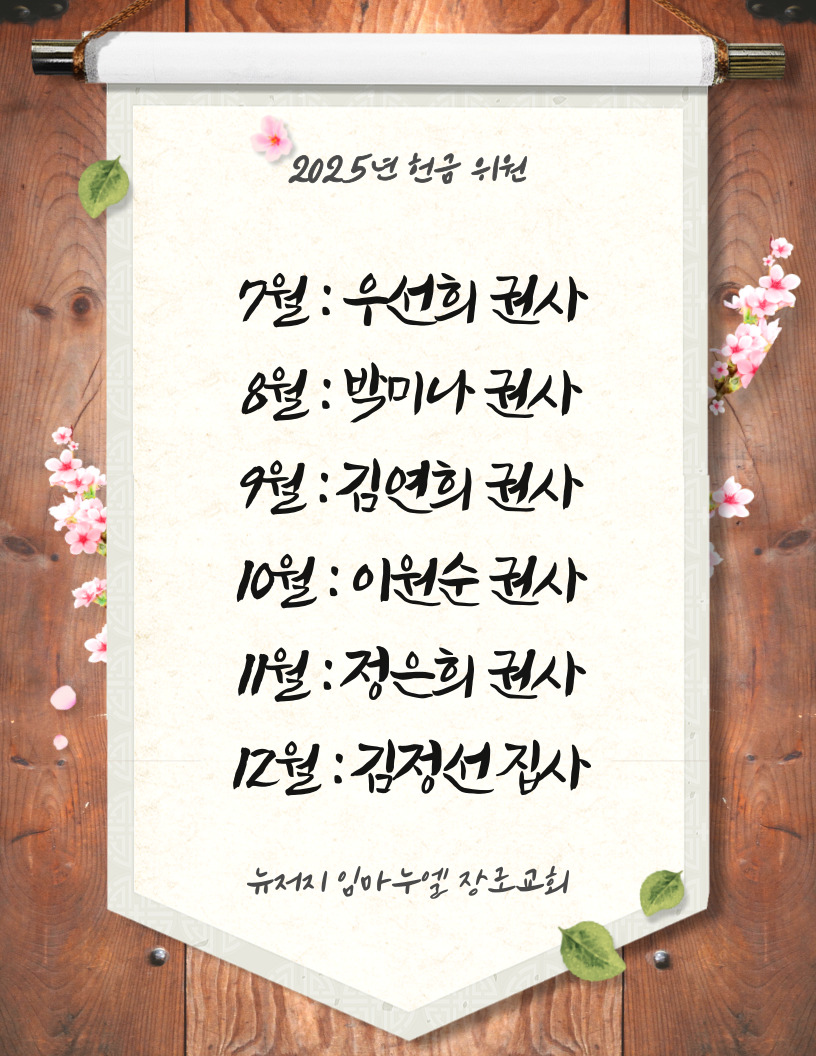 2025년 헌금 위원
7월 : 우선희 권사
8월 : 박미나 권사
9월 : 김연희 권사
10월 : 이원순 권사
11월 : 정은희 권사
12월 : 김정선 집사
뉴저지 임마누엘 장로교회